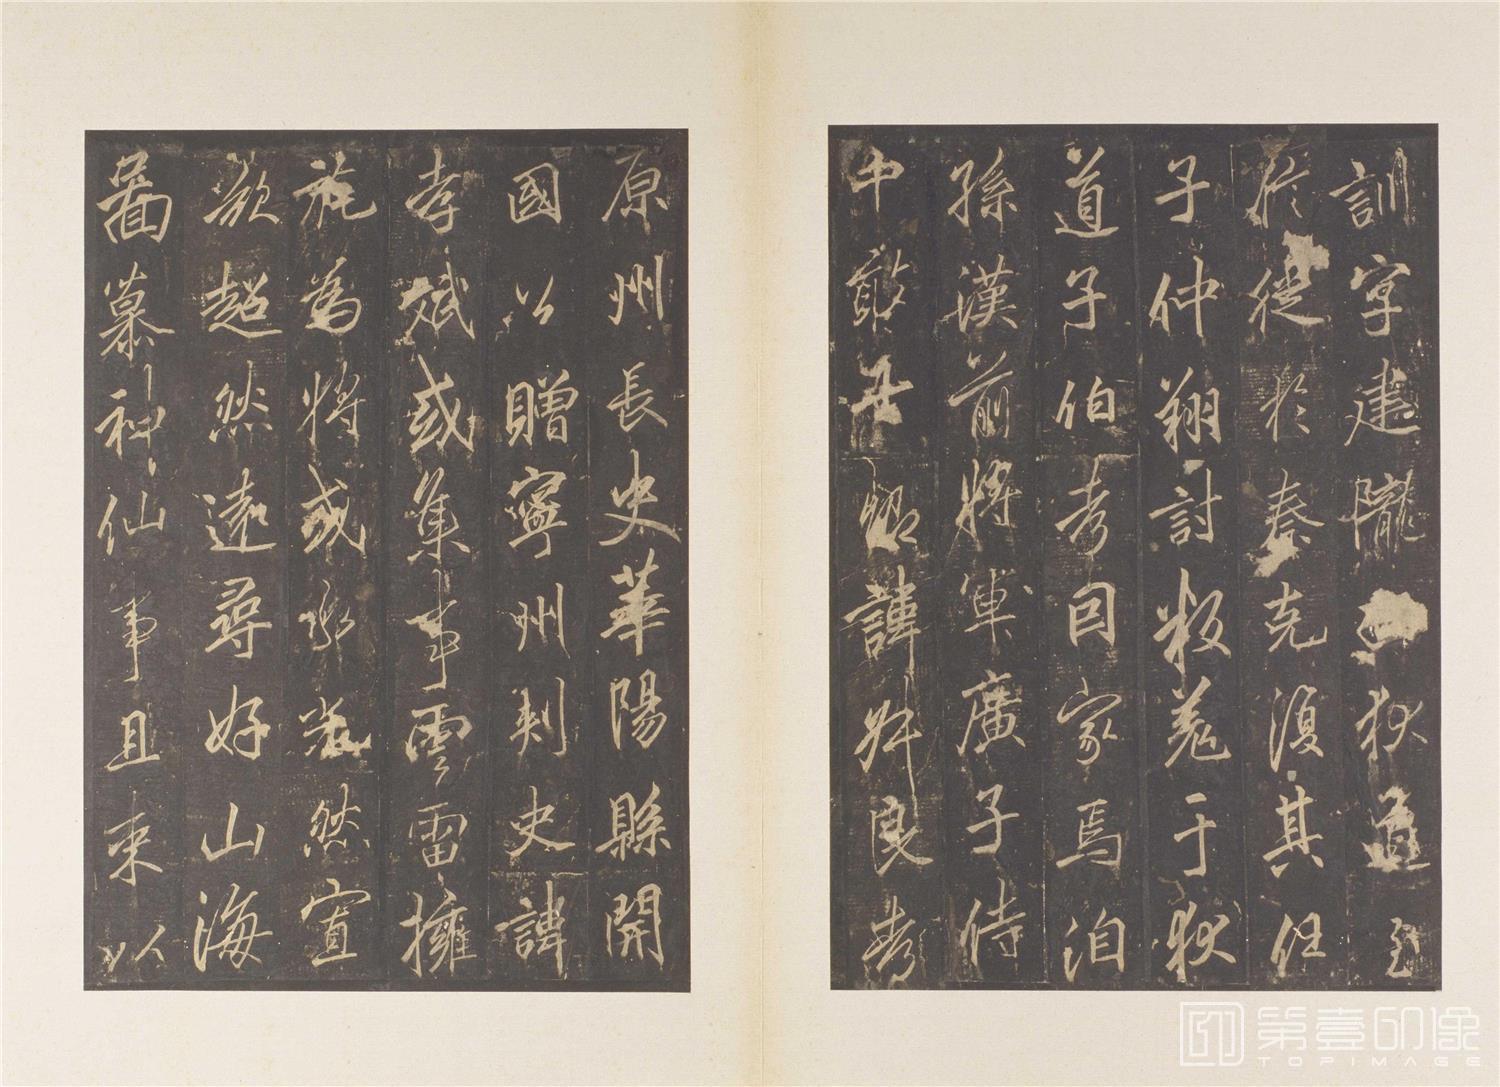 訓字建隴西狄道至
於徙於秦克復其任
子仲翔討叛羌于狄
道子伯考因家焉洎
孫漢前將軍廣子侍
中敢卿諱叔良考
原州長史華陽縣開
國公贈寧州刺史諱
孝斌或集事雲雷擁
旄為將或承光然宣
歎超然遠尋好山海
啚慕神仙事且束以
第壹印像
TOPIMAGE